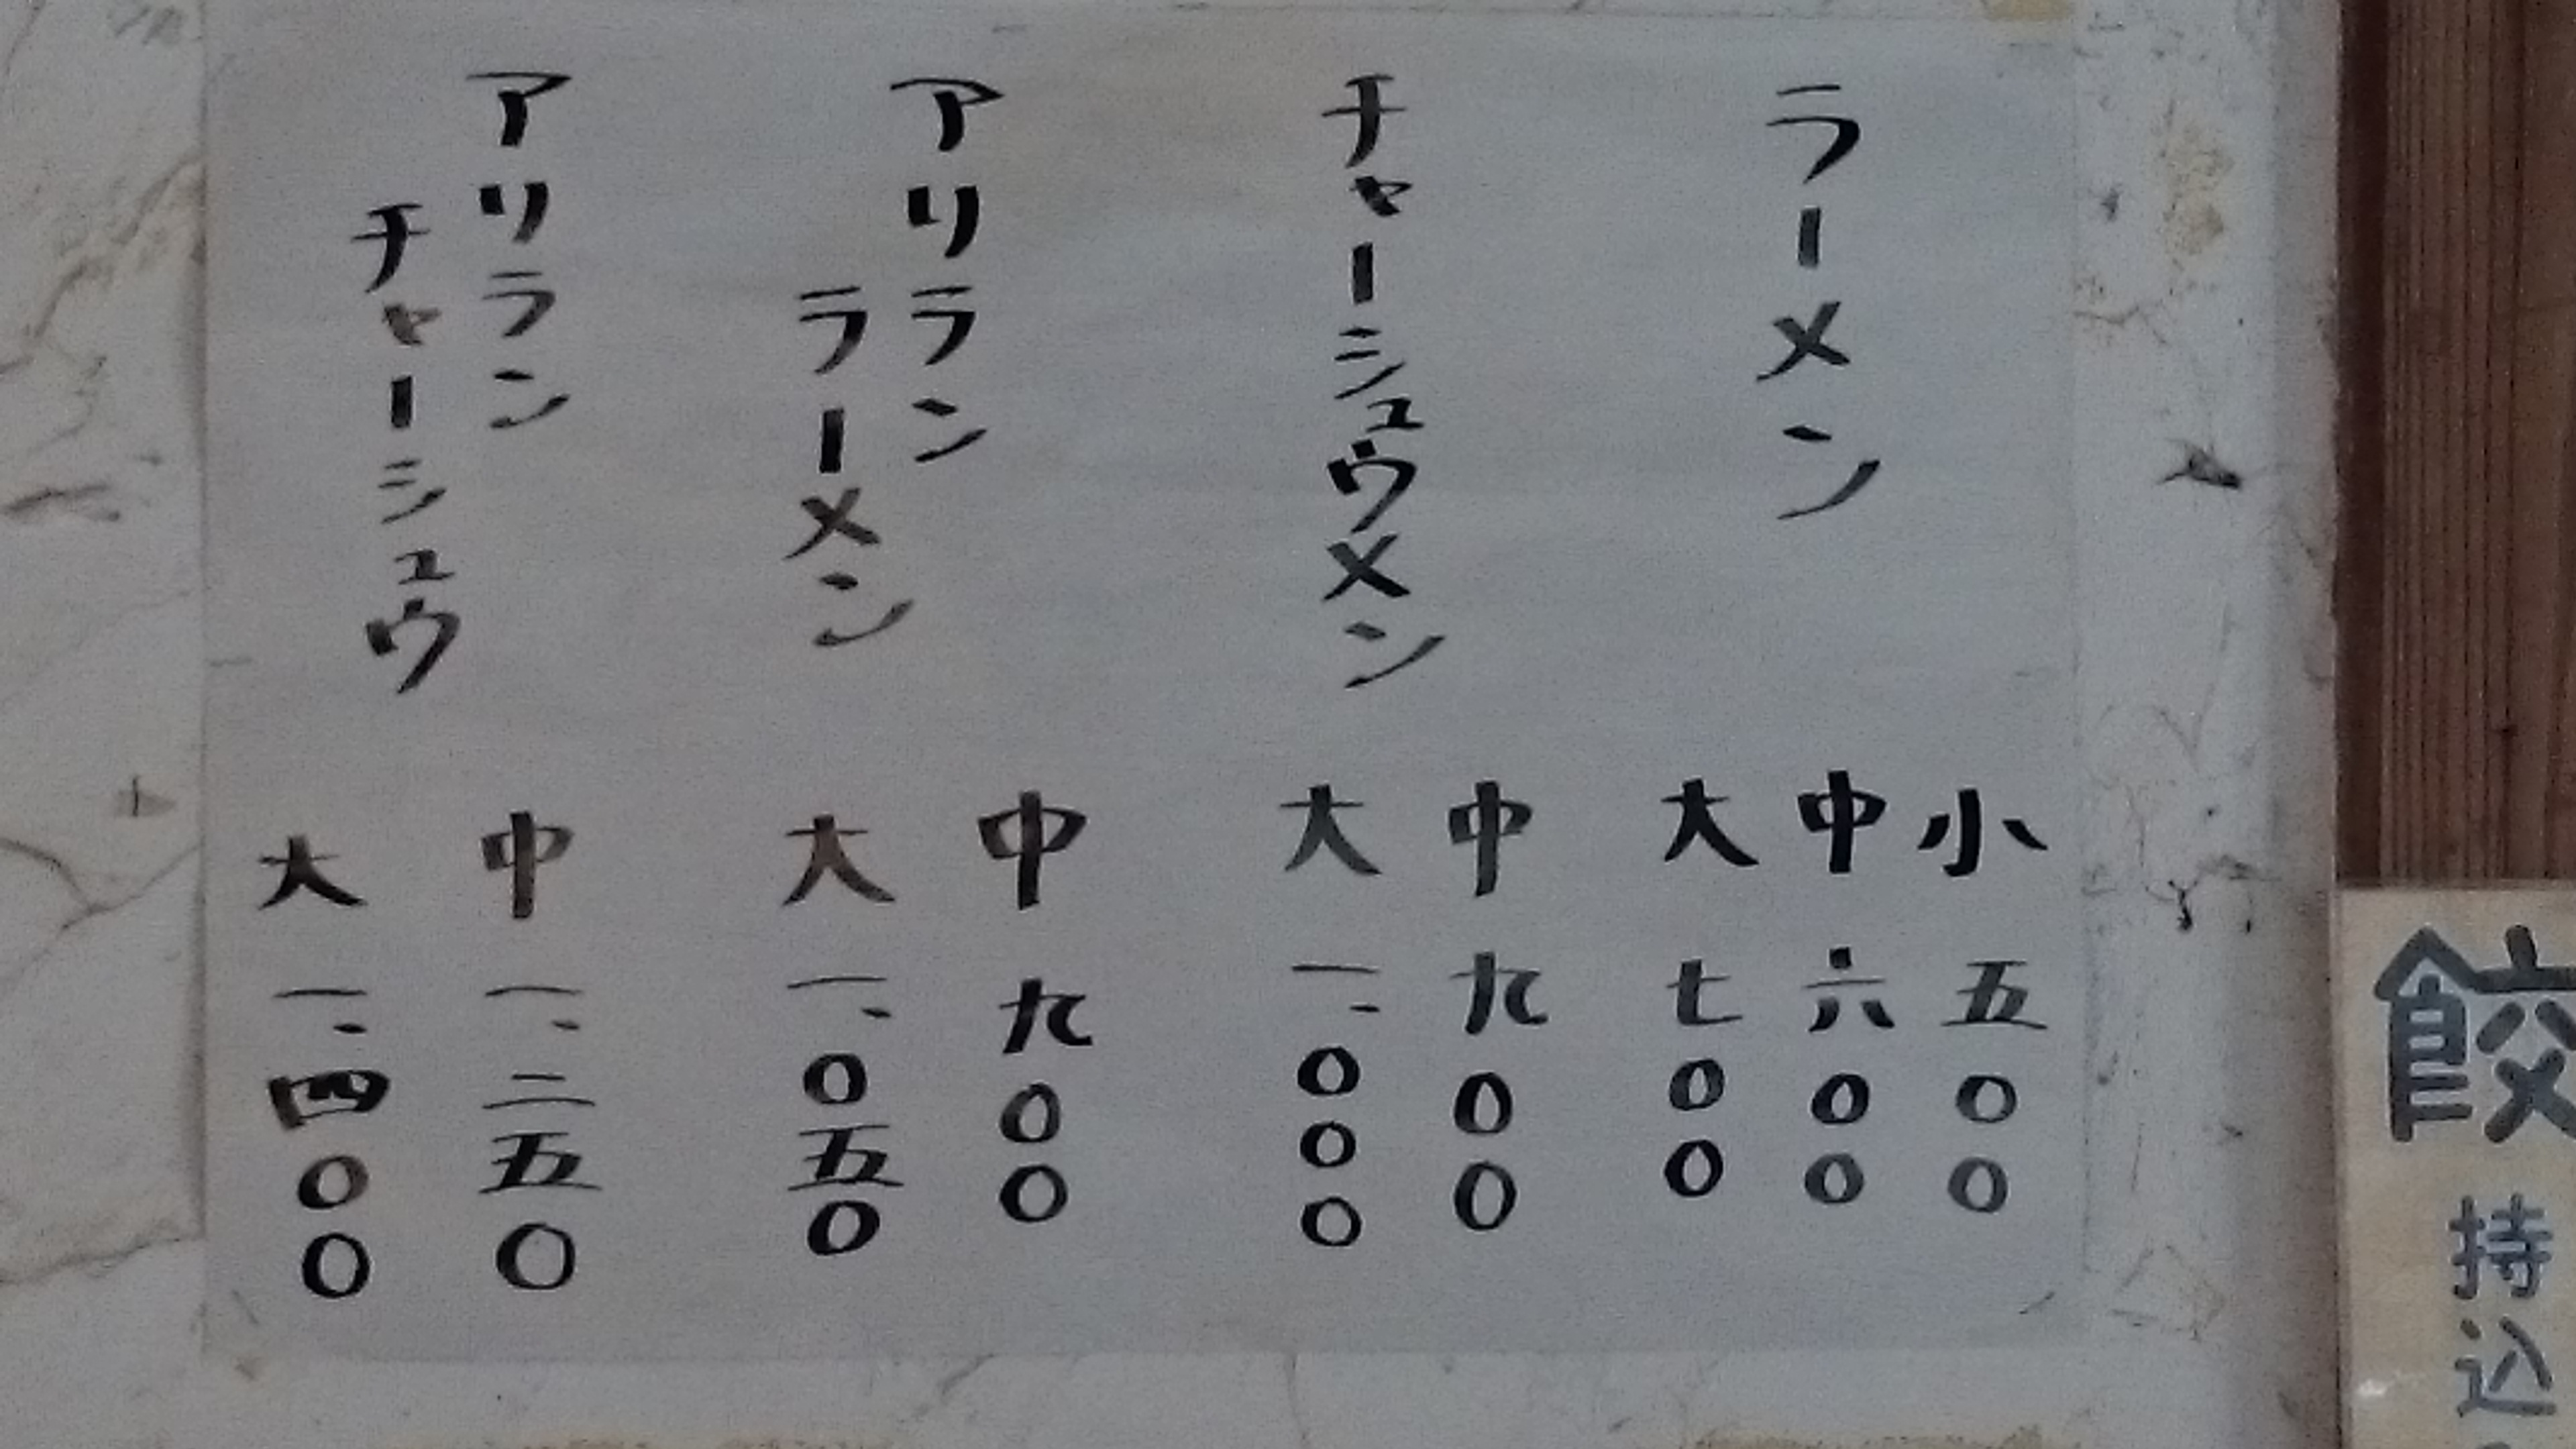 餃
持込
ラーメン
小 五〇〇
中 六〇〇
大 七〇〇
チャーシュウメン
中 九〇〇
大 一、〇〇〇
アリラン
ラーメン
中 九〇〇
大 一、〇五〇
アリラン
チャーシュウ
中 一、二五〇
大 一、四〇〇